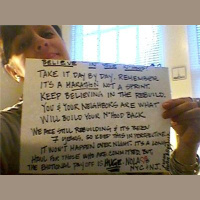 TAKE IT DAY BY DAY. REMEMBER
IT'S A MARATHON NOT A SPRINT.
KEEP BELIEVING IN THE REBUILD.
YOU & YOUR NEIGHBORS ARE WHAT
WILL BUILD YOUR N'HOOD BACK.
WE ARE STILL REBUILDING
SO KEEP THIS IN PERSPECTIVE.
IT WON'T HAPPEN OVER NIGHT. IT'S A LONG
HAUL FOR THOSE WHO ARE COMMITTED BUT
THE EMOTIONAL PAY OFF IS HUGE. NOLA
NYC/NJ